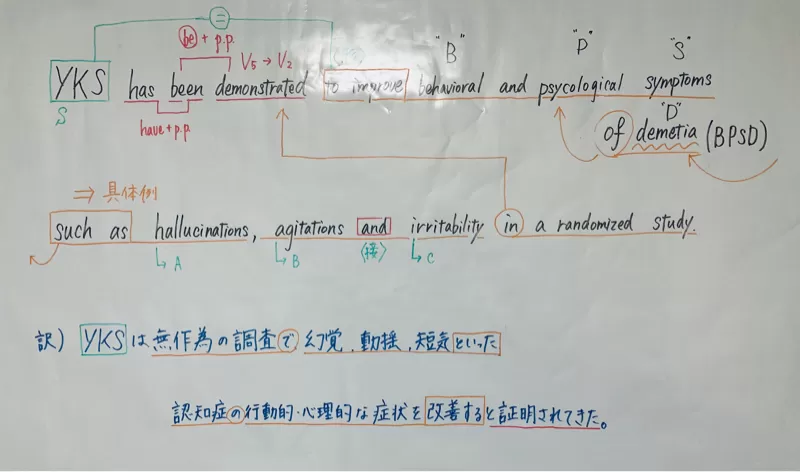 =
be + p.p V5 → V2 "B" "P" "S"
YKS has been demonstrated to improve behavioral and psycological symptoms
S have + p.p "D"
of demetia (BPSD)
⇒ 具体例
such as hallucinations, agitations and irritability in a randomized study.
↳ A ↳ B 〈接〉 ↳ C
訳) YKS は無作為の調査で幻覚、動揺、短気といった
認知症の行動的・心理的な症状を改善すると証明されてきた。